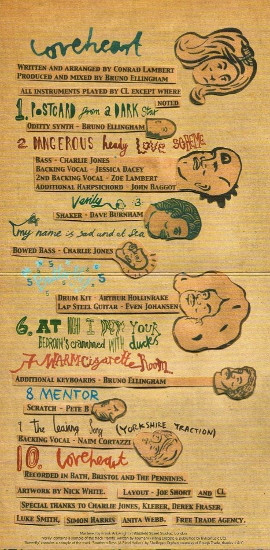 Loveheart
WRITTEN AND ARRANGED BY CONRAD LAMBERT
PRODUCED AND MIXED BY BRUNO ELLINGHAM
ALL INSTRUMENTS PLAYED BY CL EXCEPT WHERE
NOTED
1. POSTCARD from a DARK Star
ODDITY SYNTH - BRUNO ELLINGHAM
2. DANGEROUS heady LOVE SCHEME
BASS - CHARLIE JONES
BACKING VOCAL - JESSICA DACEY
2ND BACKING VOCAL - ZOE LAMBERT
ADDITIONAL HARPSICHORD - JOHN BAGGOT
Verily 3
SHAKER - DAVE BURNHAM
my name is sad and at sea
BOWED BASS - CHARLIE JONES
5
DRUM KIT - ARTHUR HOLLINRAKE
LAP STEEL GUITAR - EVEN JOHANSEN
6. AT HI DIY YOUR
BEDROOM'S crammed WITH ducks
7 WARM Cigarette Room
ADDITIONAL KEYBOARDS - BRUNO ELLINGHAM
8 MENTOR
SCRATCH - PETE B
9 the Leaving Song (YORKSHIRE TRACTION)
BACKING VOCAL - NAIM CORTAZZI
10. Loveheart
RECORDED IN BATH, BRISTOL AND THE PENNINES.
ARTWORK BY NICK WHITE. LAYOUT - JOE SHORT AND CL
SPECIAL THANKS TO CHARLIE JONES, KLEBER, DEREK FRASER,
LUKE SMITH, SIMON HARRIS ANITA WEBB. FREE TRADE AGENCY.